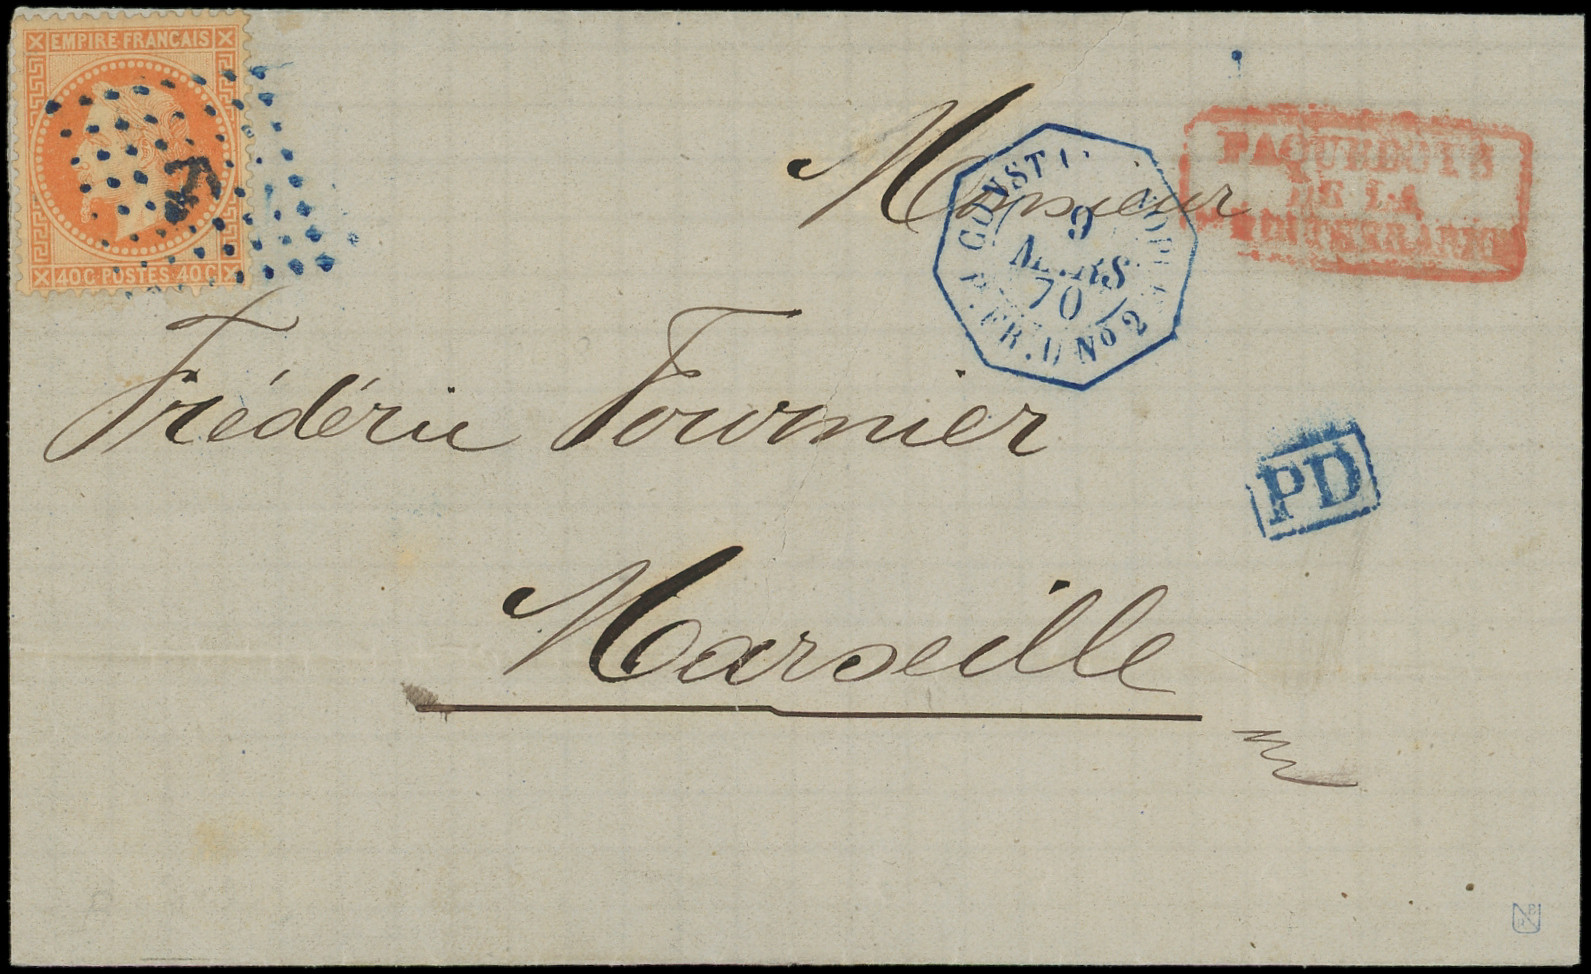 EMPIRE FRANCAIS
40C POSTES 40C
PAQUEBOTS
DE LA
MEDITERRANEE
9
MARS
70
Nº 2
Monsieur
Frédéric Fournier
PD
Marseille